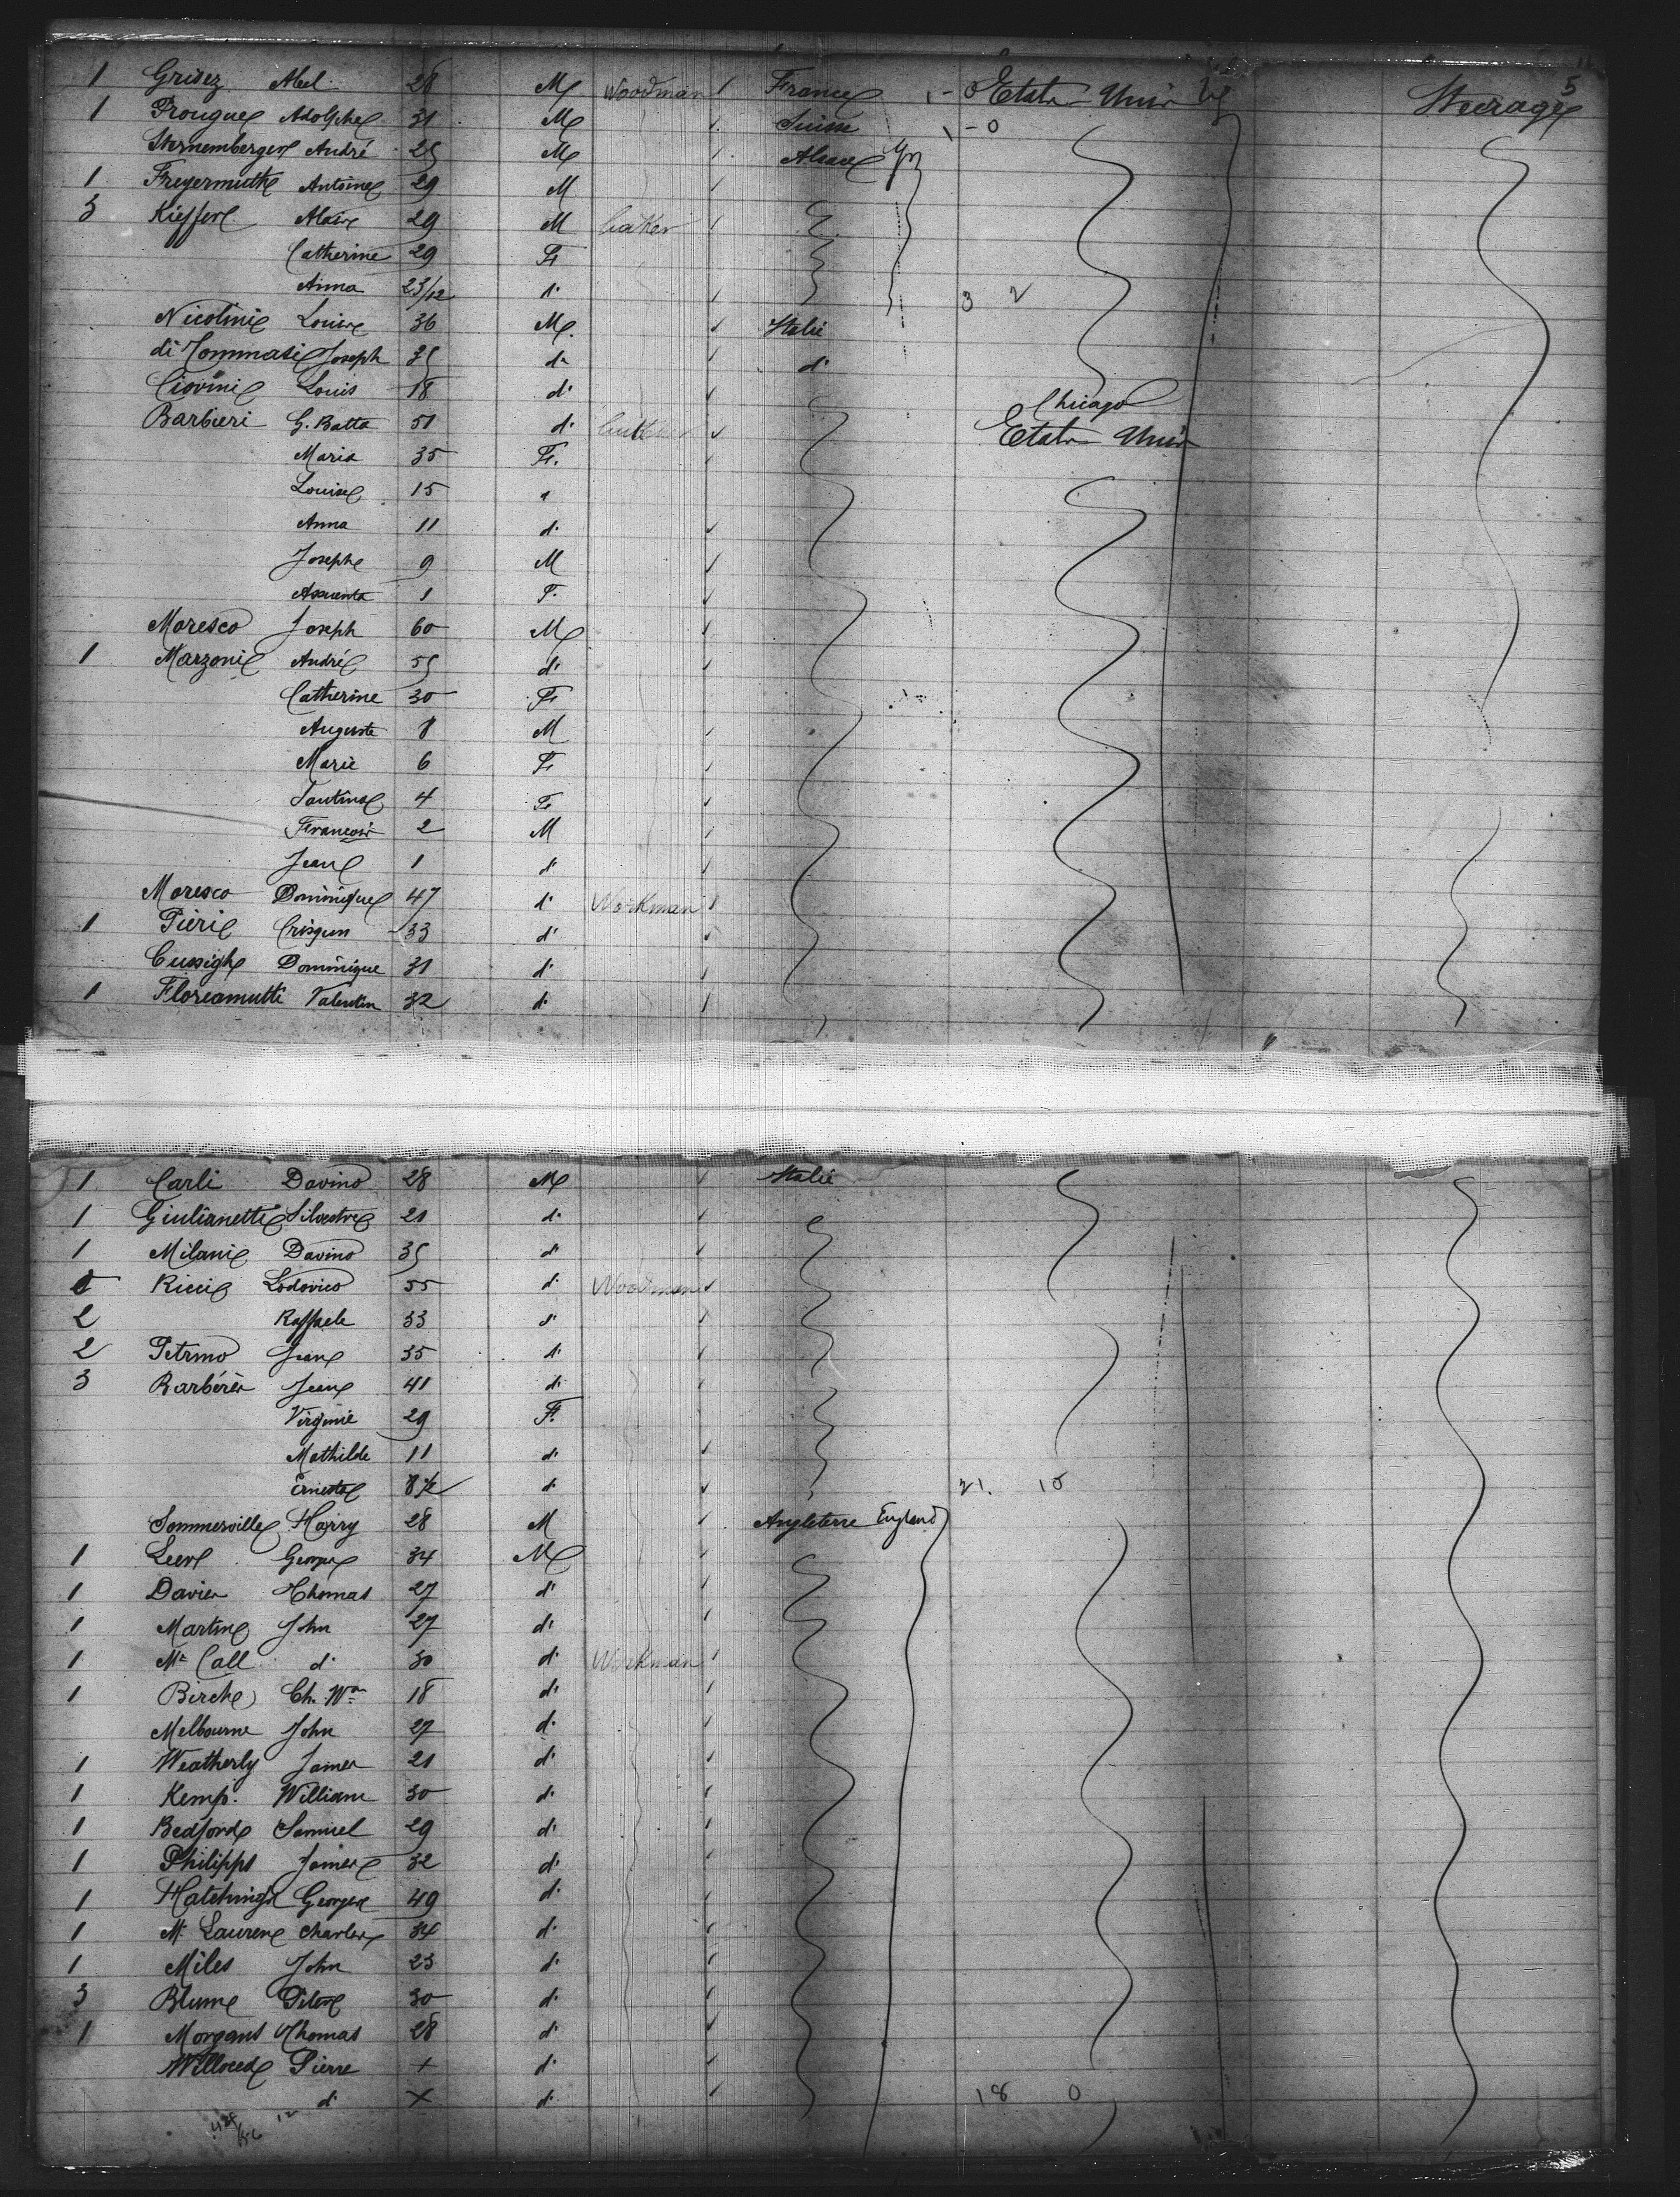 5
1 Grisez Abel 28 M Woodman France 1 - 0 Etats-Unis Steerage
1 Prongue Adolphe 31 M Suisse 1 - 0
Sternemberger André 25 M Alsace
1 Freyermuth Antoine 29 M
3 Kieffer Aloise 29 M baker
Catherine 29 F
Anna 23/12 d° 3 2
Nicolini Louis 36 M Italie
di Tommasi Joseph 35 d° d°
Ciovini Louis 18 d° Chicago
Barbieri G. Batta 51 d° Etats-Unis
Maria 35 F.
Louise 15
Anna 11 d°
Joseph 9 M
Assunta 1 F.
Moresco Joseph 60 M
1 Marzoni André 55 d°
Catherine 30 F
Auguste 8 M
Marie 6 F
Santina 4 F
François 2 M
Jean 1 d°
Moresco Dominique 47 d° Workman
1 Pieri Crispin 33 d°
Cussigh Dominique 31 d°
1 Floreamutti Valentin 32 d°
1 Carli Davino 28 M Italie
1 Giulianetti Silvestre 21 d°
1 Milani Davino 35 d°
Ricci Lodovico 55 d° Woodman
2 Raffaele 33 d°
2 Petrino Jean 35 d°
3 Barbérès Jean 41 d°
Virginie 29 F.
Mathilde 11 d°
Ernesta 8 1/2 d° 21. 10
Sommerville Harry 28 M Angleterre England
1 George 34 M
1 Davies Thomas 27 d°
1 Martin John 27 d°
1 Mc Call d° 30 d° Workman
1 Birch Ch. Wm 18 d°
Melbourne John 27 d°
1 Weatherly James 21 d°
1 Kemp. William 30 d°
1 Bedford Samuel 29 d°
1 Philipps James 32 d°
1 Hatchings George 49 d°
1 Mc Lauren Charles 34 d°
1 Miles John 23 d°
3 Blum Peter 30 d°
1 Morgans Thomas 28 d°
Willoced Pierre + d°
d° X d° 18 0